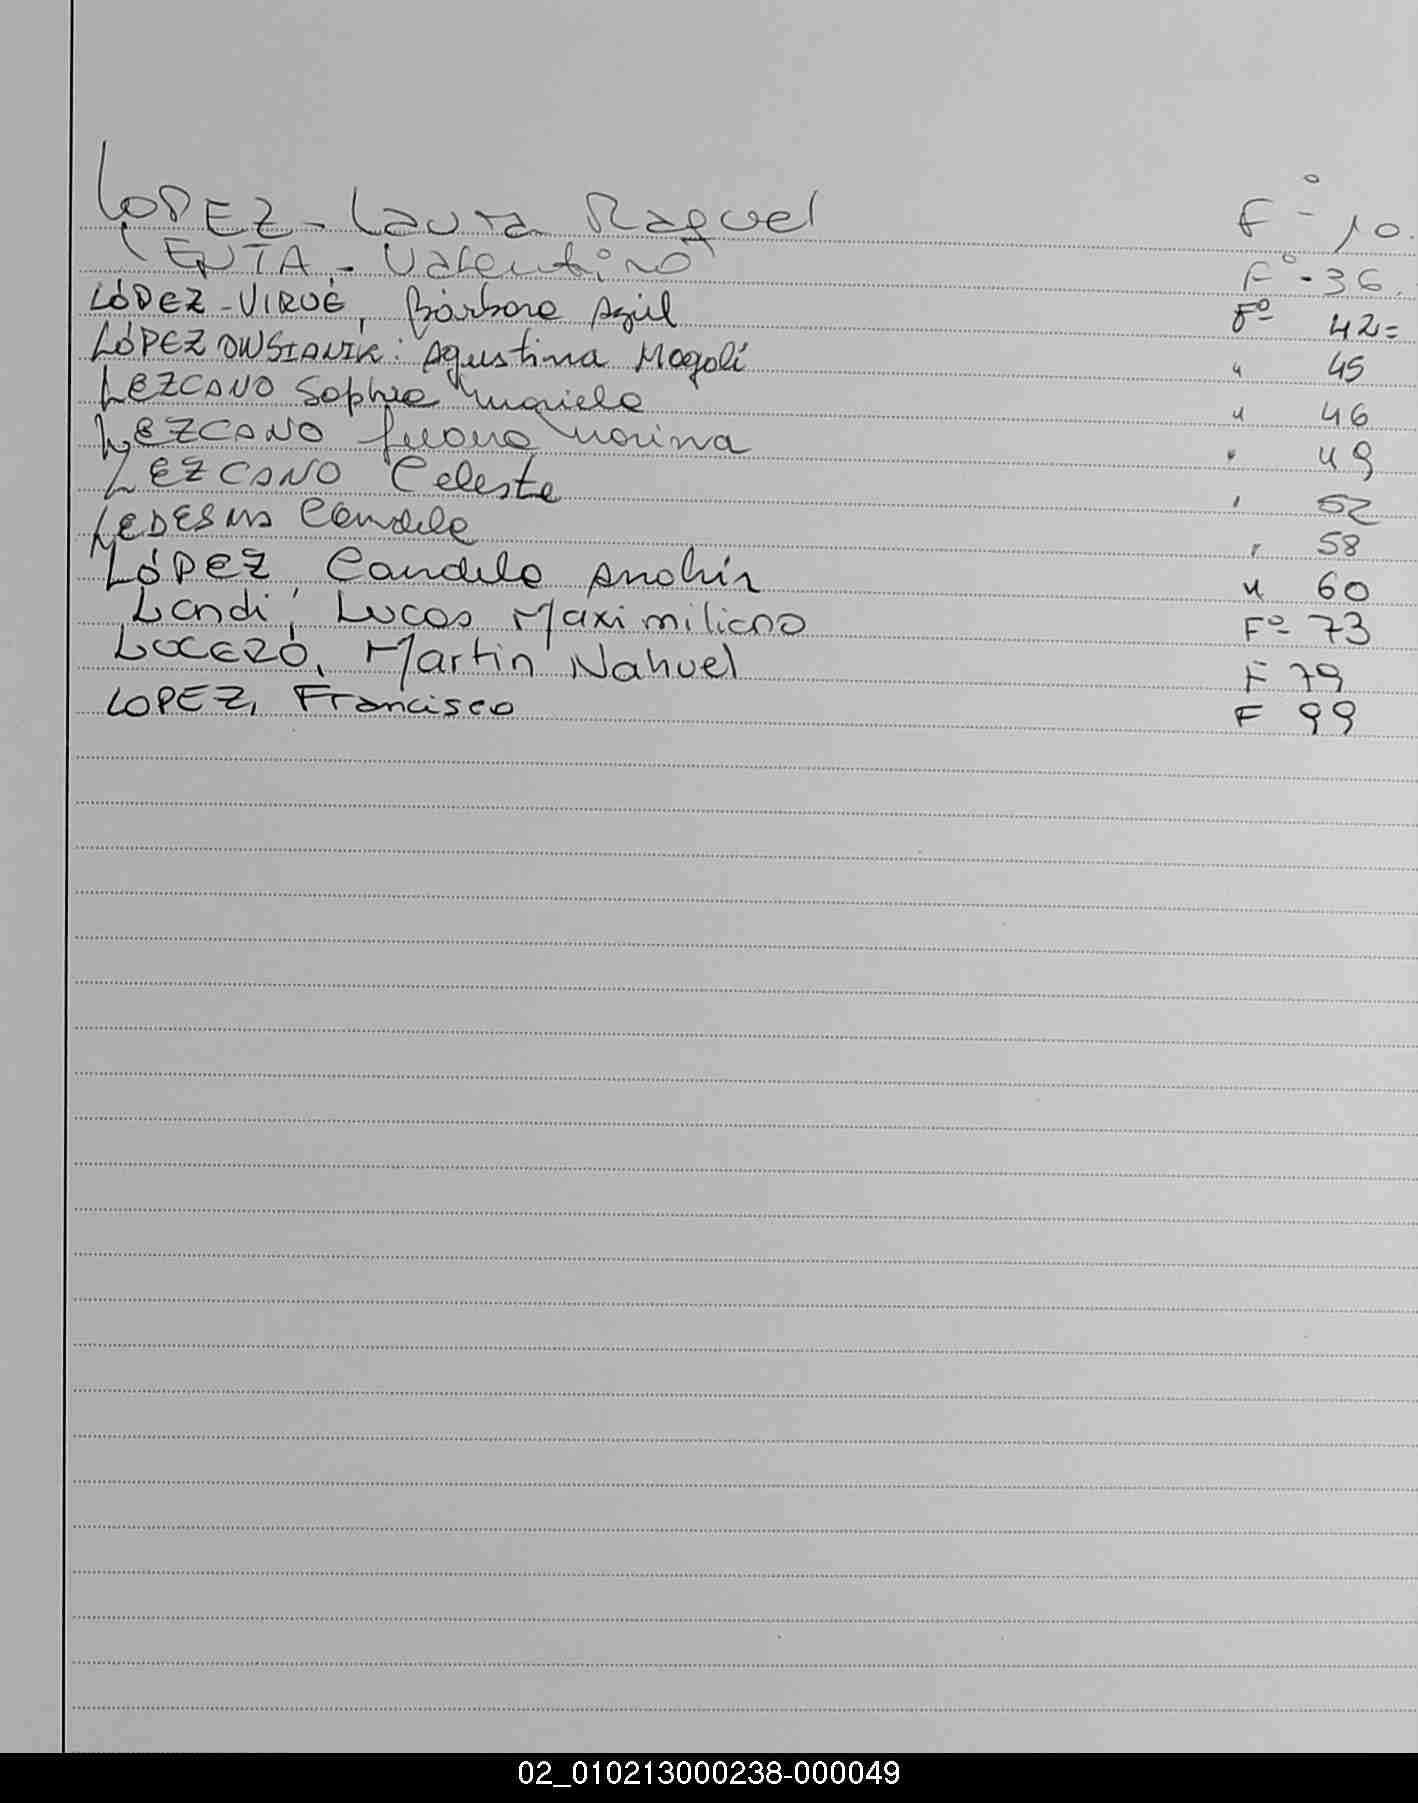 LOPEZ - Laura Raquel F° - 10.
LENTA - Valentino F° - 36.
LÓPEZ - VIRUÉ, Bárbara Azul Fº 42=
LÓPEZ OWSIANIK: Agustina Magalí " 45
LEZCANO Sophie Mariela " 46
LEZCANO Juana Marina " 49
LEZCANO Celeste " 52
LEDESMA Candela " 58
LÓPEZ, Candela Anahir " 60
Landi, Lucas Maximiliano Fº 73
LUCERO, Martin Nahuel F 79
LOPEZ, Francisco F 99
02_010213000238-000049